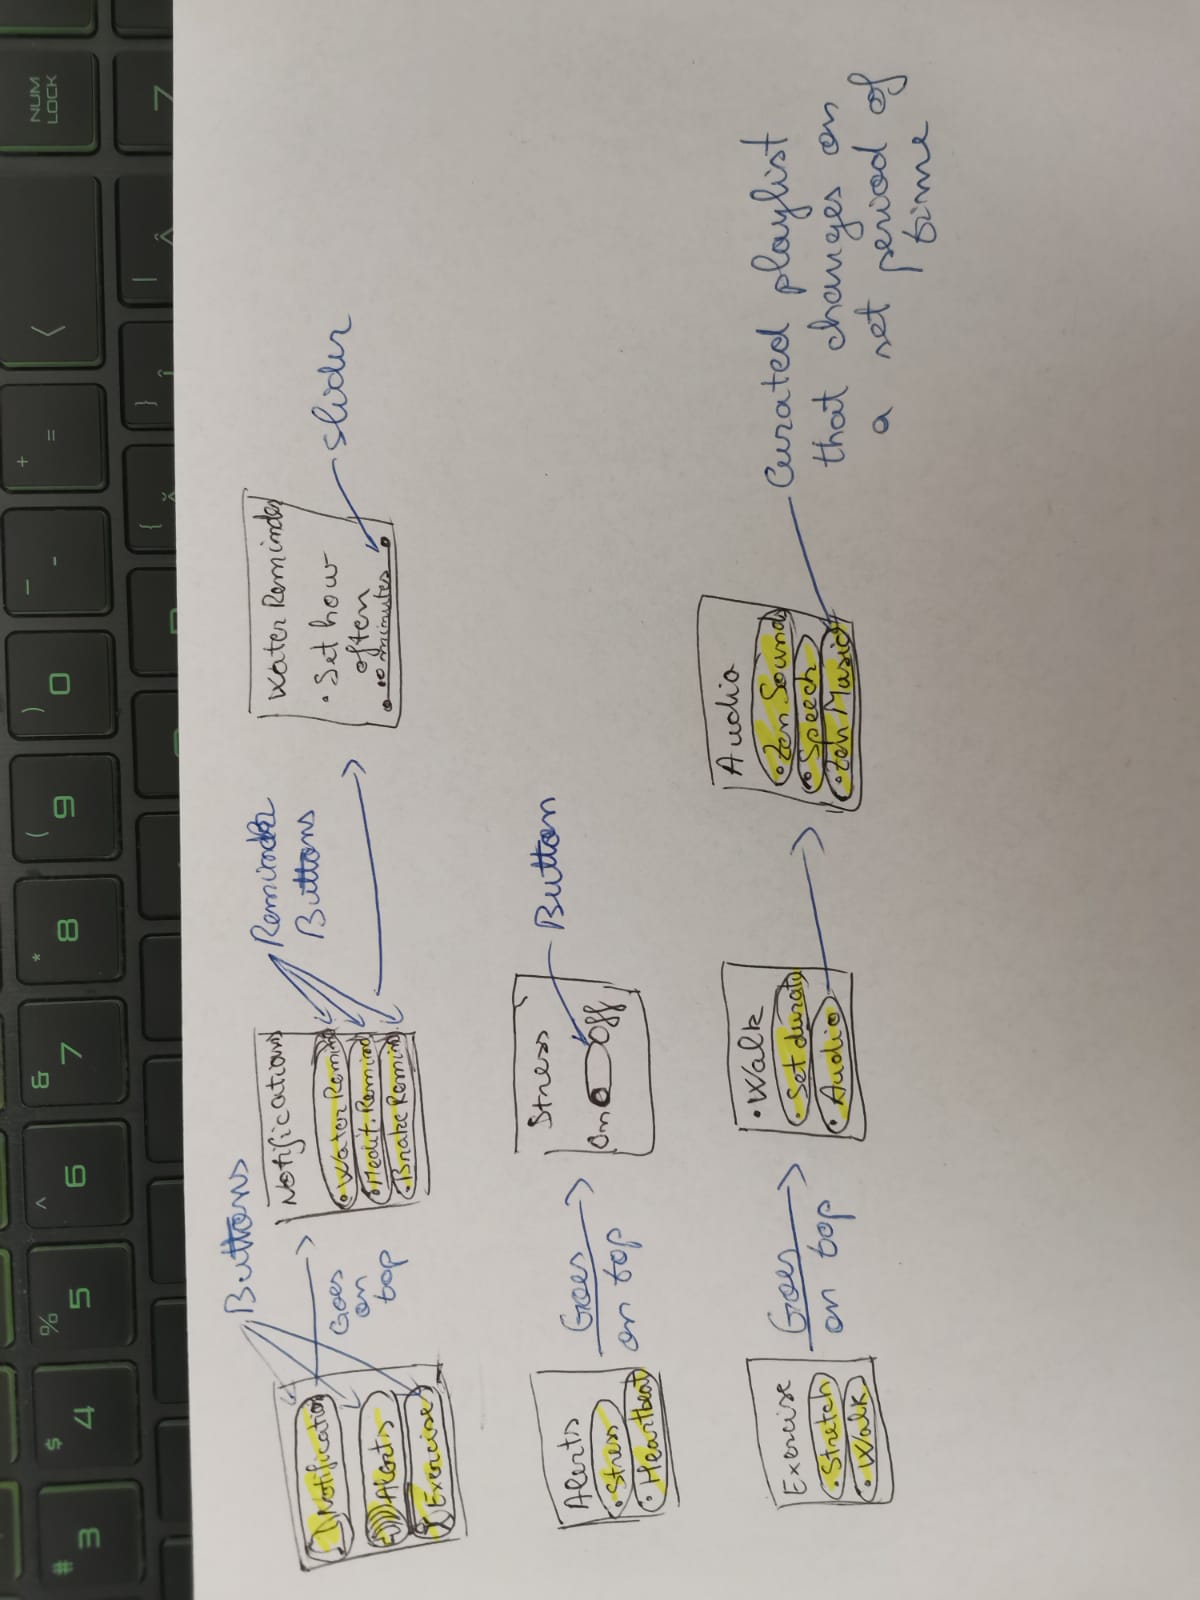 Buttons
Notification
Alerts
Exercise
Goes
on
top
Notifications
• Water Remind
• Medit. Remind
• Brake Remind
Reminder
Buttons
Water Reminder
• Set how
often
minutes
Slider
Alerts
• Stress
• Heartbeat
Goes
on top
Stress
On Off
Button
Exercise
• Stretch
• Walk
Goes
on top
• Walk
• Set durat
• Audio
Audio
• Zen Sound
• Speech
• Zen Music
Curated playlist
that changes on
a set period of
time
NUM
LOCK
7
<
| ^
+ =
} ]
_ -
{ [
) 0
( 9
* 8
& 7
^ 6
% 5
$ 4
# 3